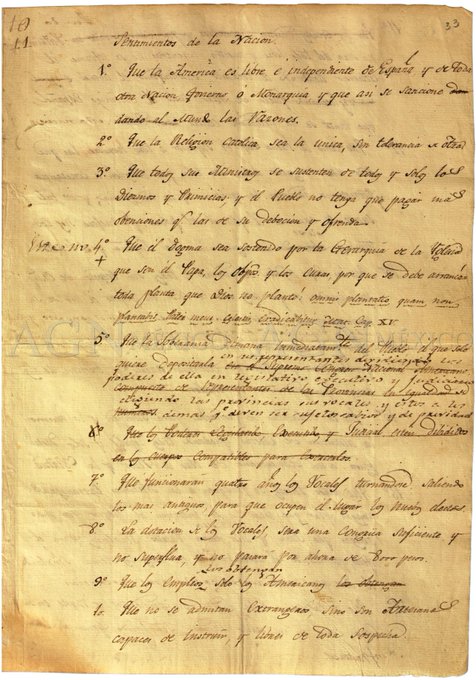 10
11
33
Sentimientos de la Nacion.
1.º Que la America es libre é independiente de España y de toda
otra Nacion, Govierno ó Monarquia y que asi se sancione
dando al Mundo las razones.
2.º Que la Religion Catolica, sea la unica, sin tolerancia de otra
3.º Que todos sus Ministros se sustenten de todos y solos los
Diezmos y Primicias, y el Pueblo no tenga que pagar mas
obenciones que las de su debocion y ofrenda.
4.º Que el dogma sea sostenido por la Gerarquia de la Iglesia
que son el Papa, los Obispos y los Curas por que se debe arrancar
toda planta que Dios no plantó: omnis plantatio quam non
plantabit Pater meus Celestis Eradicabitur. Mat. Cap. XV
5.º Que la Soberania dimana inmediatamente del Pueblo, el que solo
quiere depositarla
en sus representantes dividiendo los
Supremo Congreso Nacional Americano
poderes de ella en Legislativo executivo y Judiciario
compuesto de representantes de las Provincias en igualdad de
eligiendo las provincias sus vocales, y estos a los
demas que deven ser sujetos sabios y de providad
6.º Que los Poderes Legislativo Executivo y Judicial esten divididos
en los cuerpos compatibles para exercerlos
7.º Que funcionaran quatro años los Vocales turnandose, saliendo
los mas antiguos, para que ocupen el lugar los nuevos electos.
8.º La dotacion de los Vocales, sera una congrua suficiente y
no superflua, y no pasara por ahora de 8000 pesos.
los obtengan
9.º Que los empleos solo los Americanos los obtengan
10. Que no se admitan extrangeros sino son Artesanos
capaces de instruir, y libres de toda sospecha.